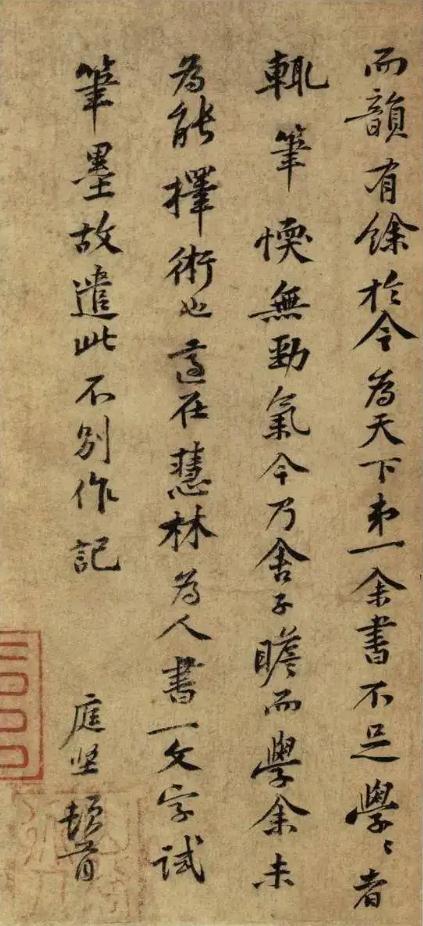 而韻有餘於今為天下第一余書不足學〻者
輒筆愞無勁氣今乃舍子瞻而學余未
為能擇術也適在慧林為人書一文字試
筆墨故遣此不別作記
庭坚頓首